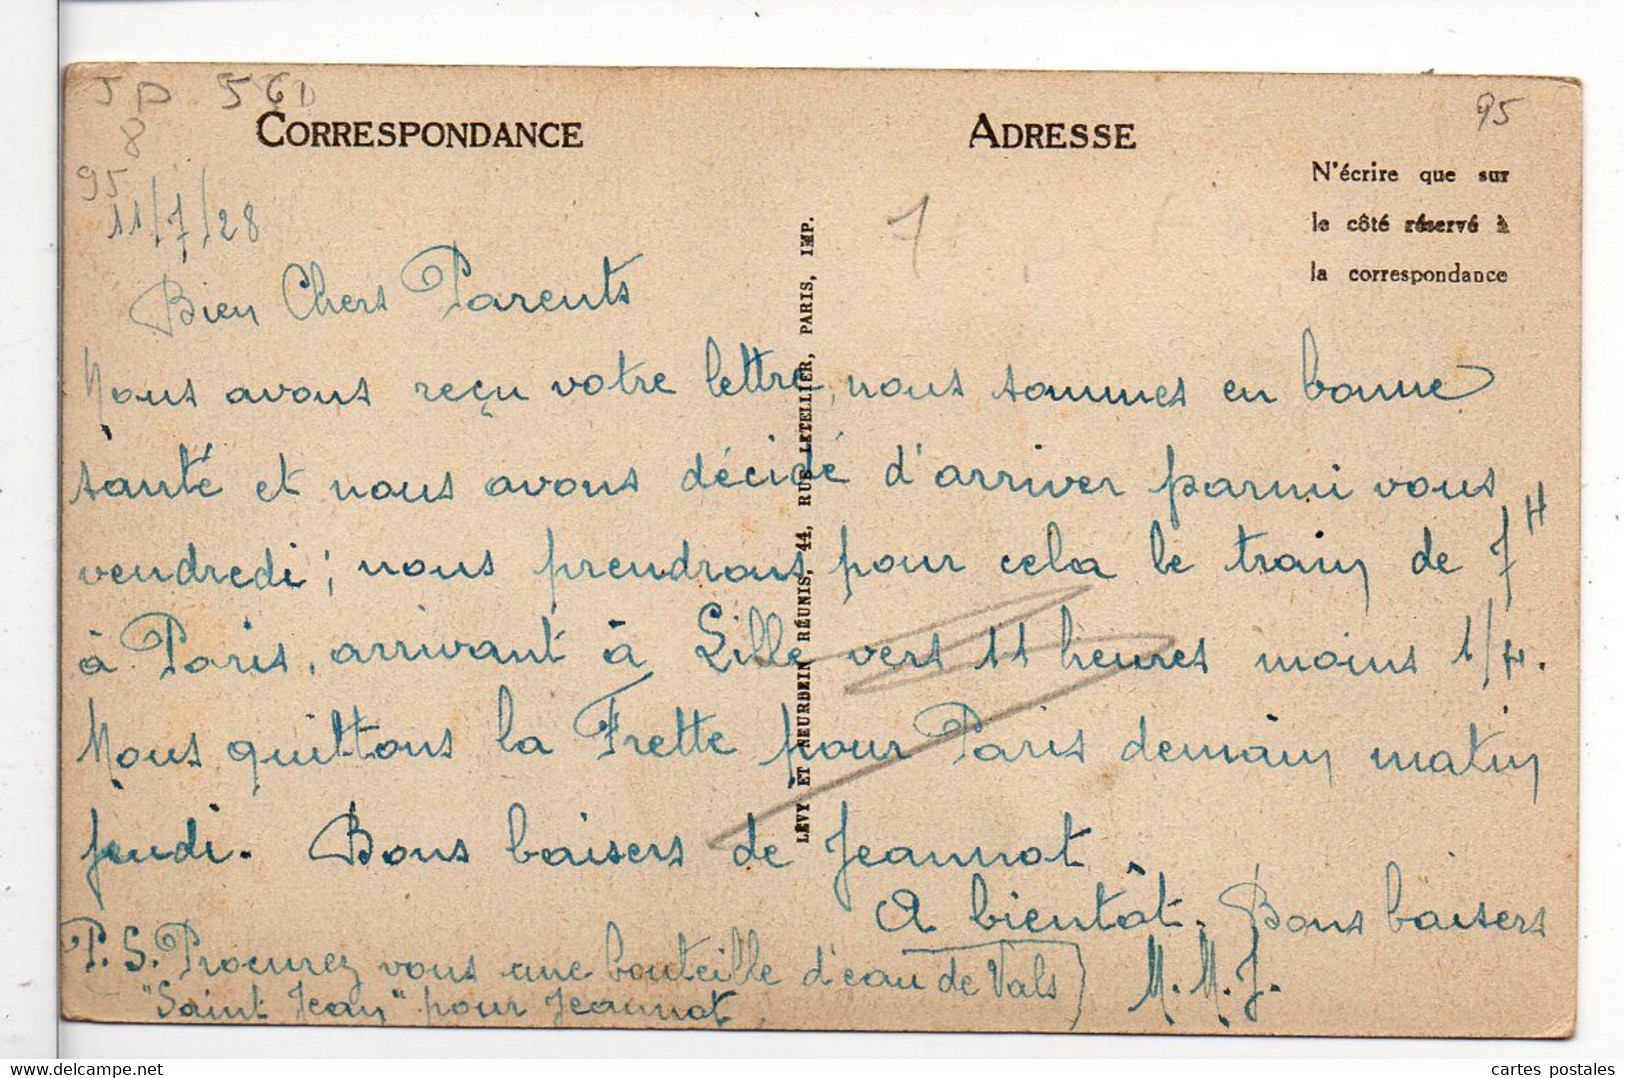 JD 561
8
95
95
CORRESPONDANCE
ADRESSE
N'écrire que sur
le côté réservé à
la correspondance
7
11/7/28
Bien Chers Parents
Nous avons reçu votre lettre, nous sommes en bonne
santé et nous avons décidé d'arriver parmi vous
vendredi ; nous prendrons pour cela le train de 7H
à Paris, arrivant à Lille vers 11 heures moins 1/4.
Nous quittons la Frette pour Paris demain matin
jeudi. Bons baisers de Jeannot.
A bientôt. Bons baisers
M.M.J.
P.S. Procurez vous une bouteille d'eau de Vals
"Saint Jean" pour Jeannot.
LÉVY ET NEURDEIN RÉUNIS, 44, RUE LETELLIER, PARIS, IMP.
cartes postales
jacques561nd